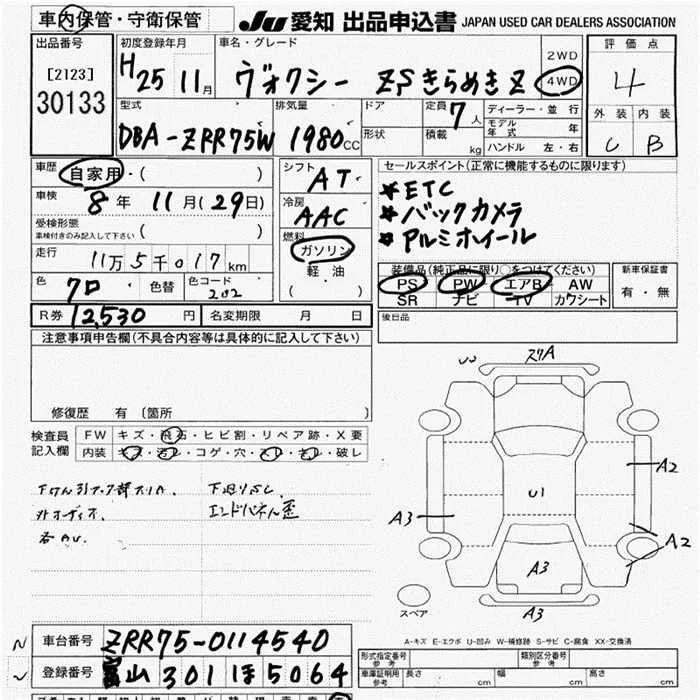 車内保管・守衛保管
JU 愛知 出品申込書 JAPAN USED CAR DEALERS ASSOCIATION
出品番号
[2123]
30133
初度登録年月
H25 11月
車名・グレード
ヴォクシー ZSきらめきZ
2WD
4WD
評価点
4
外装 内装
C B
型式
DBA-ZRR75W
排気量
1980CC
ドア
形状
定員 7人
積載 kg
ディーラー・並行
モデル年式 年
ハンドル 左・右
車歴 自家用・( )
車検 8年 11月(29日)
受検形態
車検付きのみ記入して下さい ( )
走行 11万5千017km
色 クロ 色替 色コード 202
シフト AT
冷房 AAC
燃料
ガソリン
軽油
( ・ )
セールスポイント(正常に機能するものに限ります)
*ETC
*バックカメラ
*アルミホイール
装備品(純正品に限り○をつけてください)
PS PW エアB AW
SR ナビ TV カワシート
新車保証書
有・無
R券 12,530円 名変期限 月 日
後日品
注意事項申告欄(不具合内容等は具体的に記入して下さい)
修復歴 有 〔箇所 〕
検査員記入欄
FW キズ・飛石・ヒビ割・リペア跡・X要
内装 キズ・汚レ・コゲ・穴・スレ・キレ・破レ
外オーディオ
エンドパネル歪
スリA
A2
U1
A3
A2
A3
A3
スペア
A-キズ E-エクボ U-凹み W-補修跡 S-サビ C-腐食 XX-交換済
車台番号 ZRR75-0114540
登録番号 富山 301 ほ 5064
形式指定番号 参考
類別区分番号 参考
車庫証明用 参考 長さ cm 幅 cm 高さ cm